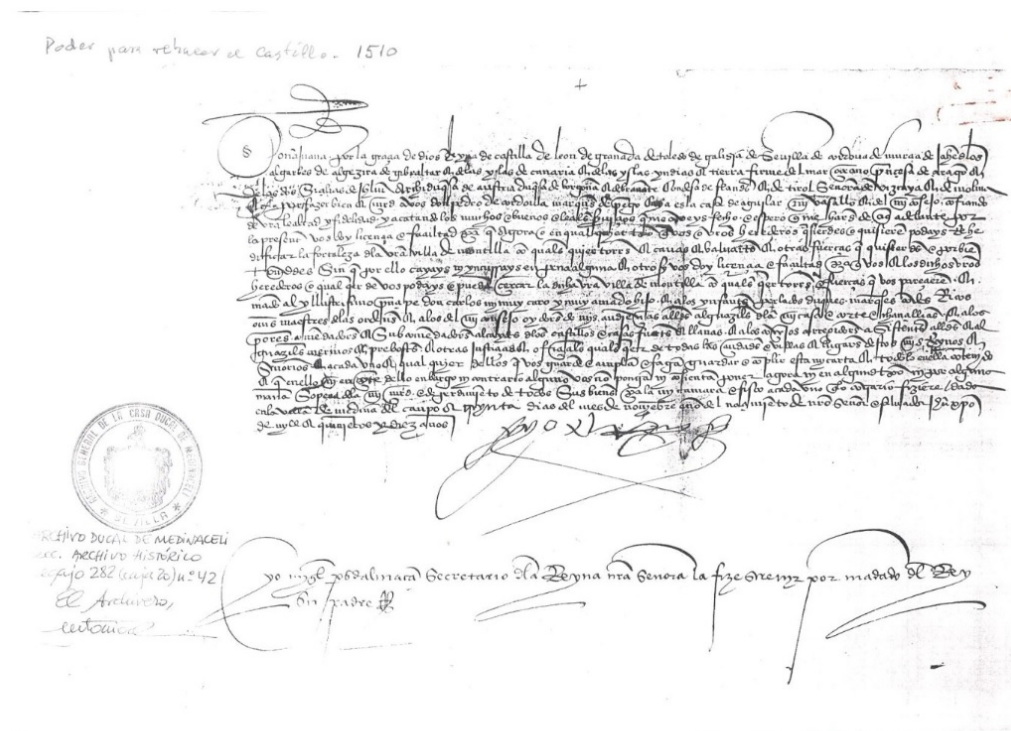 Poder para rehacer el Castillo. 1510
+
Doña Juana por la graçia de dios Reyna de castilla de leon de granada de toledo de galizia de Sevilla de cordova de murçia de Jahen de los
algarbes de algezira de gibraltar & de las yslas de canaria & de las yslas yndias & tierra firme del mar oçeano prinçesa de arago &
de las dos Siçilias de Jslm archiduquesa de austria duquesa de borgoña & de brabante condesa de flandes & de tirol Señora de vizcaya & de molina
por fazer bien & mrd a vos don pedro de cordova marques de pego cuya es la casa de aguilar my vasallo & del my consejo acatando
vra lealtad y fidelidad y acatando los muchos e buenos e leales Serviçios q me aveys fecho e espero q me hareys de aqui adelante por
la presente vos doy liçençia e facultad para q agora e en qualquier tpo vos e vros herederos quisierdes e quisieren podays Rehe
dificar la fortaleza dla vra villa de montilla con quales quier torres & cavas & baluartes & otras fuerças q quisierdes e por bien
tuvierdes Sin q por ello cayays ny yncurrays en pena alguna & otrosy vos doy liçençia e facultad para q vos & los dichos vros
herederos e qual qer de vos podays e puedan çercar la dicha vra villa de montilla con quales qer torres e fuerças q vos pareçiere &
mando al yllustrisimo prinçipe don carlos my muy caro y muy amado hijo & a los ynfantes perlados duques marqueses condes Ricos
omes maestres de las ordenes & a los del my consejo oydores de la mi audiençia alldes alguaziles dla my casa e corte e chançilleria & a los
priores comendadores & Subcomendadores alcaydes dlos castillos e casas fuertes e llanas & a los conçejos corregidores asistente alldes &
alguaziles merinos & prebostes & otras justiçias & ofiçiales quales qer de todas las çiudades e villas & lugares de los mis Reynos &
Señorios & a cada uno & qual quier dellos q vos guarden e cumplan e fagan guardar e conplir esta my carta & todo lo en ella contenido
& q en ello ny en parte dello enbargo ny contrario alguno vos non pongan ny consientan poner agora ny en algund tpo ny por alguna
manera So pena dla my mrd e de perdimiento de todos Sus bienes para la my camara e fisco a cada uno q lo contrario fiziere dada
en la villa de medina del canpo a treynta dias del mes de novienbre año del naçimiento de nro Señor e Salvador Jhu xpo
de mill & quinientos & diez años
yo el Rey
yo migl ps dalmaçan Secretario dla Reyna nra Señora la fize Screvir por mādado del Rey
Su padre
ARCHIVO GENERAL DE LA CASA DUCAL DE MEDINACELI
* SEVILLA *
ARCHIVO DUCAL DE MEDINACELI
Sec. ARCHIVO HISTÓRICO
Legajo 282 (caja 20) nº 42
El Archivero,